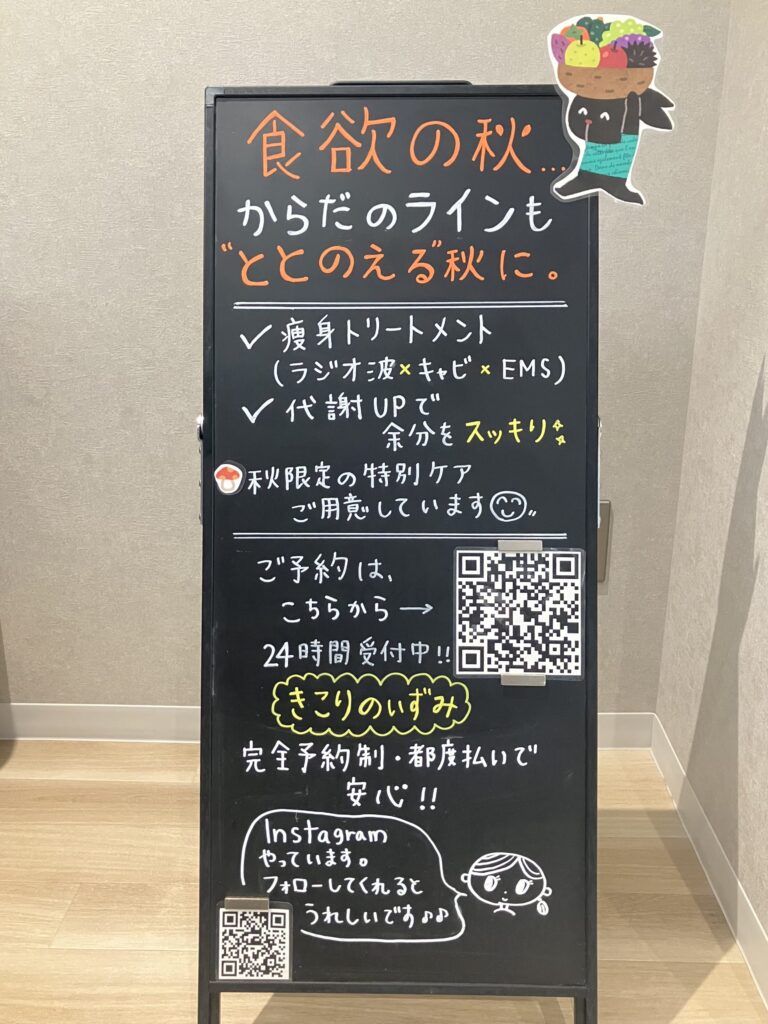 食欲の秋...
からだのラインも
"ととのえる"秋に。
✓ 痩身トリートメント
(ラジオ波×キャビ×EMS)
✓ 代謝UPで
余分をスッキリ
秋限定の特別ケア
ご用意しています
ご予約は、
こちらから→
24時間受付中!!
きこりのいずみ
完全予約制・都度払いで
安心!!
Instagram
やっています。
フォローしてくれると
うれしいです♪♪